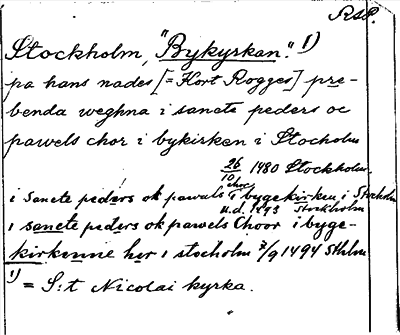 RAP.
Stockholm, "Bykyrkan". 1)
pa hans nades [= Kort Rogges] pre-
benda weghna i sancte peders oc
pawels chor i bykirken i Stocholm
26/10 1480 Stockholm.
i sancte peders ok pawals choor i bygekirken i Stocholm
u.d. 1493 Stockholm
i sancte peders ok pawels Choor i byge-
kirkenne her i stocholm 7/9 1494 Sthlm
1) = S:t Nicolai kyrka.